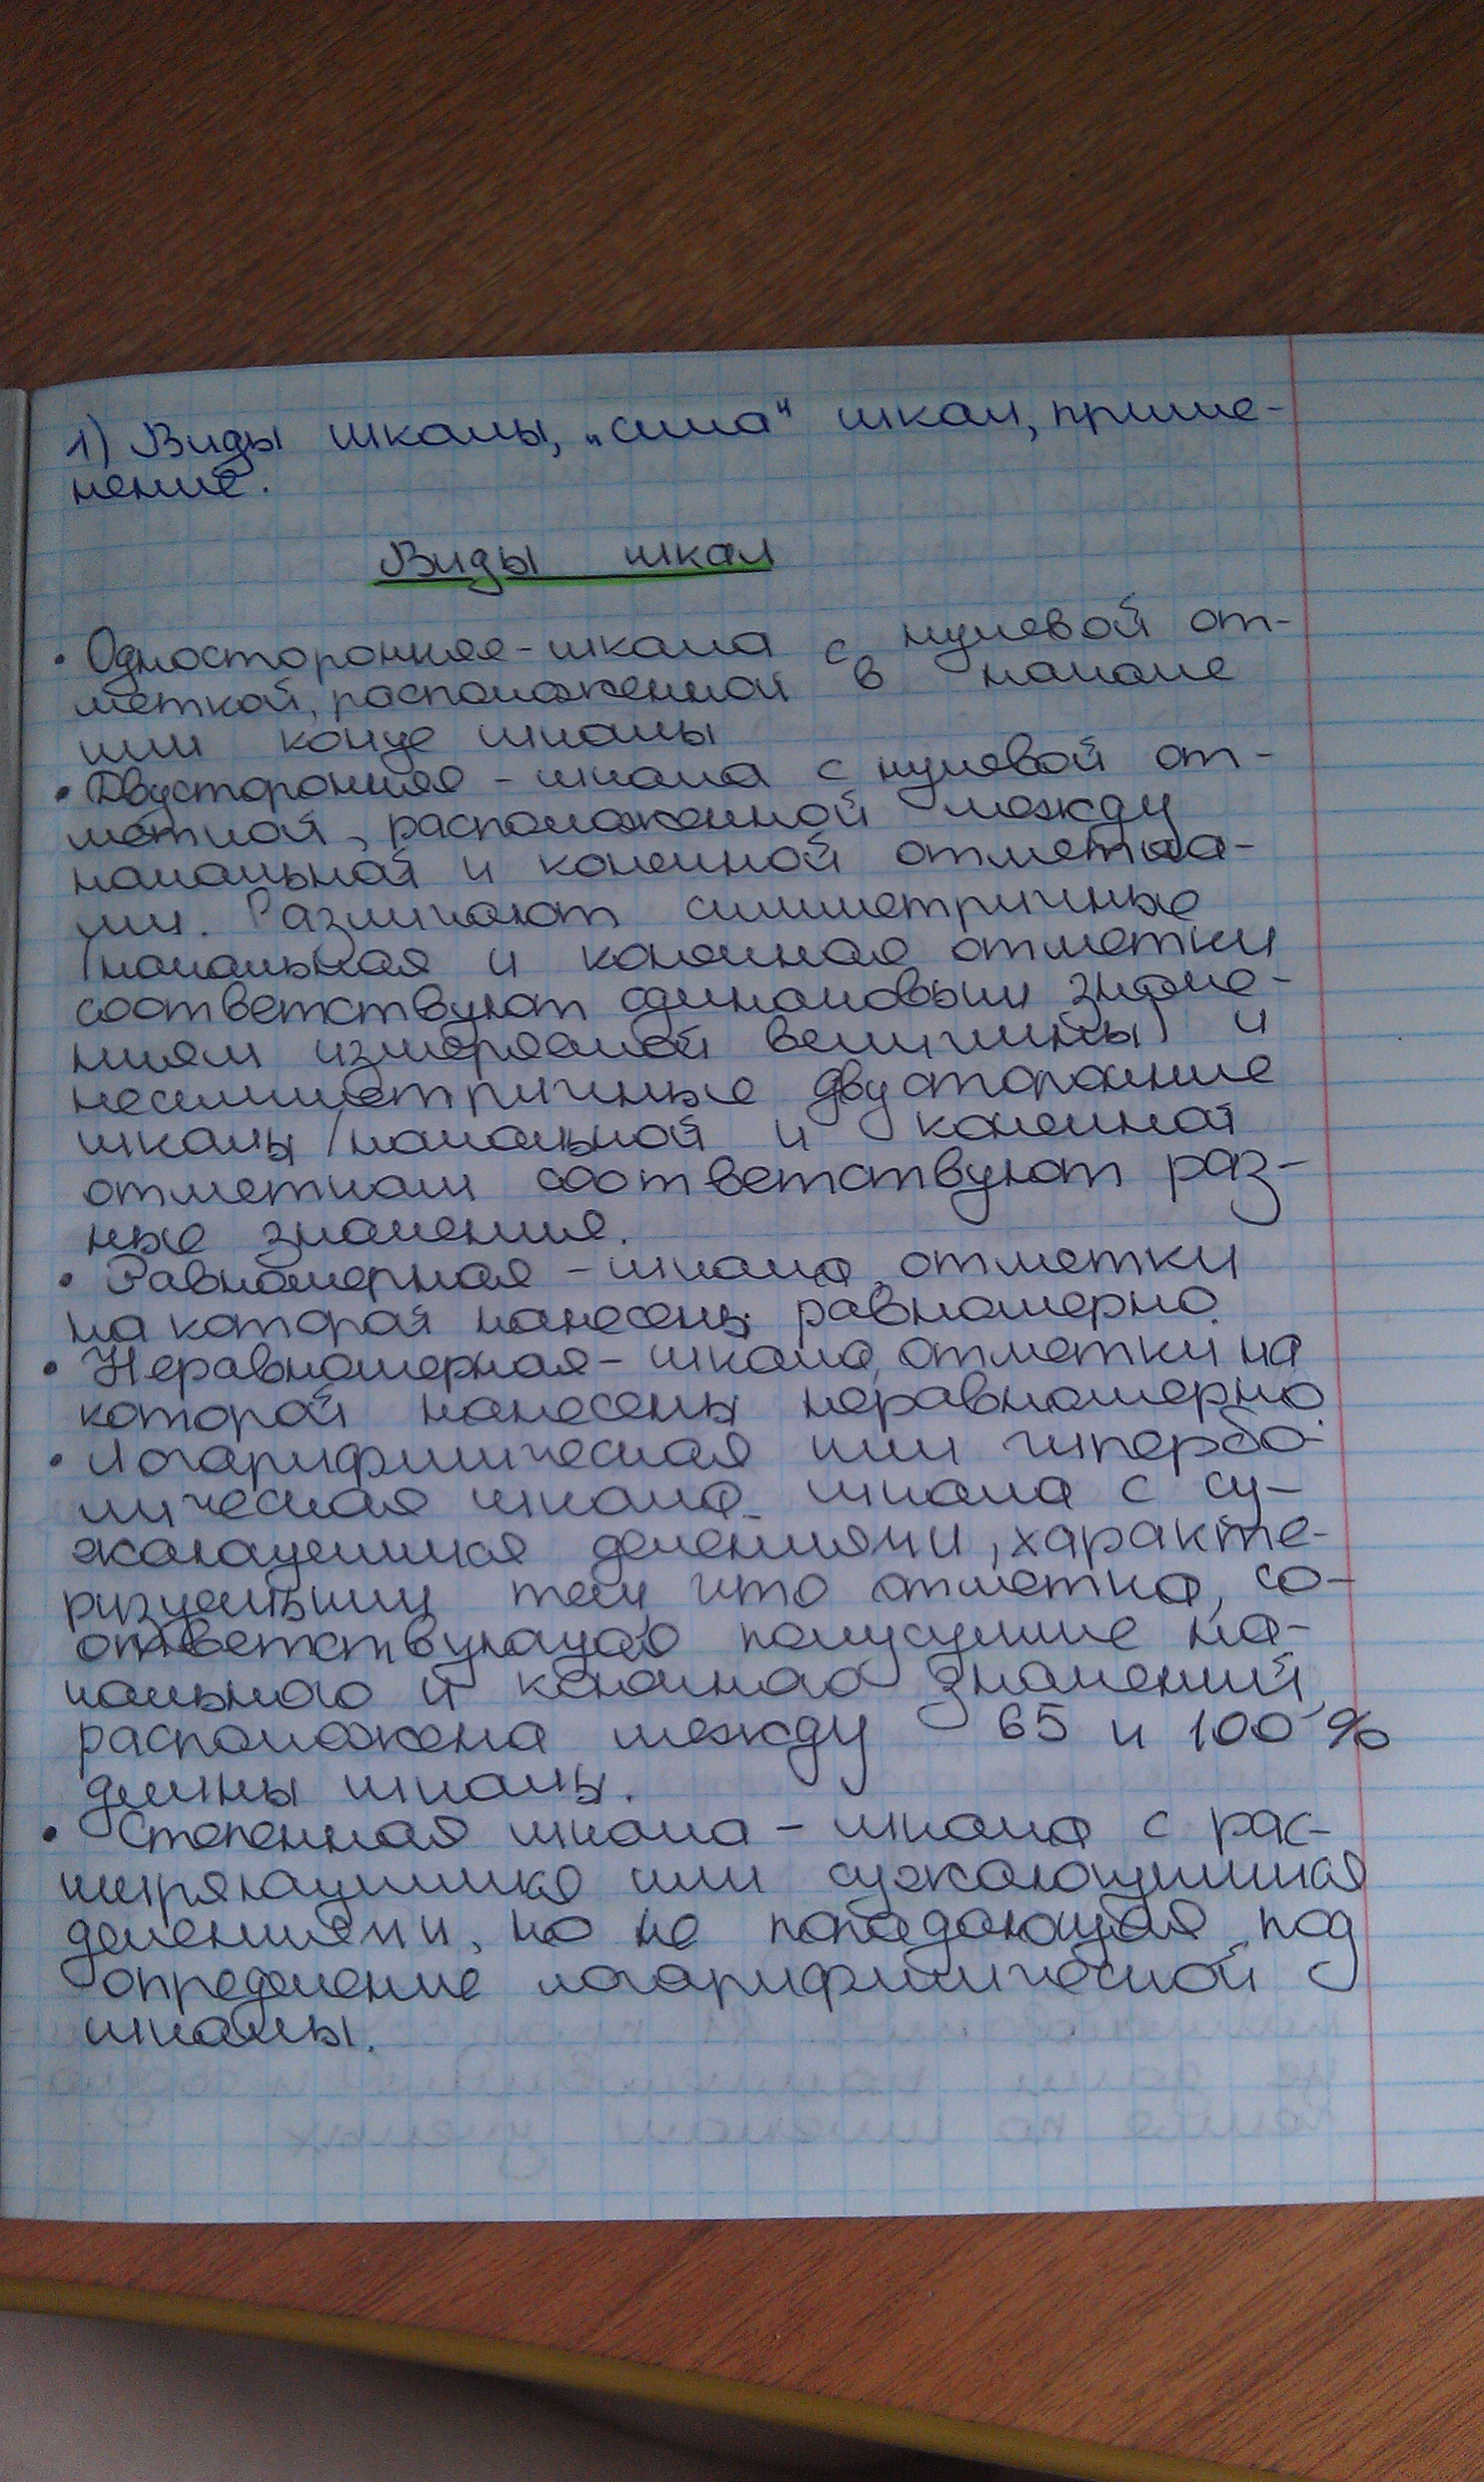 1) Виды шкалы, „сила" шкал, приме-
нение.
Виды шкал
• Односторонняя - шкала с нулевой от-
меткой, расположенной в начале
или конце шкалы
• Двусторонняя - шкала с нулевой от-
меткой, расположенной между
начальной и конечной отметка-
ми. Различают симметричные
(начальная и конечная отметки
соответствуют одинаковым значе-
ниям измеряемой величины) и
несимметричные двусторонние
шкалы (начальной и конечной
отметкам соответствуют раз-
ные значения.
• Равномерная - шкала, отметки
на которой нанесены равномерно.
• Неравномерная - шкала, отметки на
которой нанесены неравномерно.
• Логарифмическая или гипербо-
лическая шкала - шкала с су-
жающимися делениями, характе-
ризуемыми тем, что отметка, со-
ответствующая полусумме на-
чального и конечного значений,
расположена между 65 и 100 %
длины шкалы.
• Степенная шкала - шкала с рас-
ширяющимися или сужающимися
делениями, но не попадающая под
определение логарифмической
шкалы.